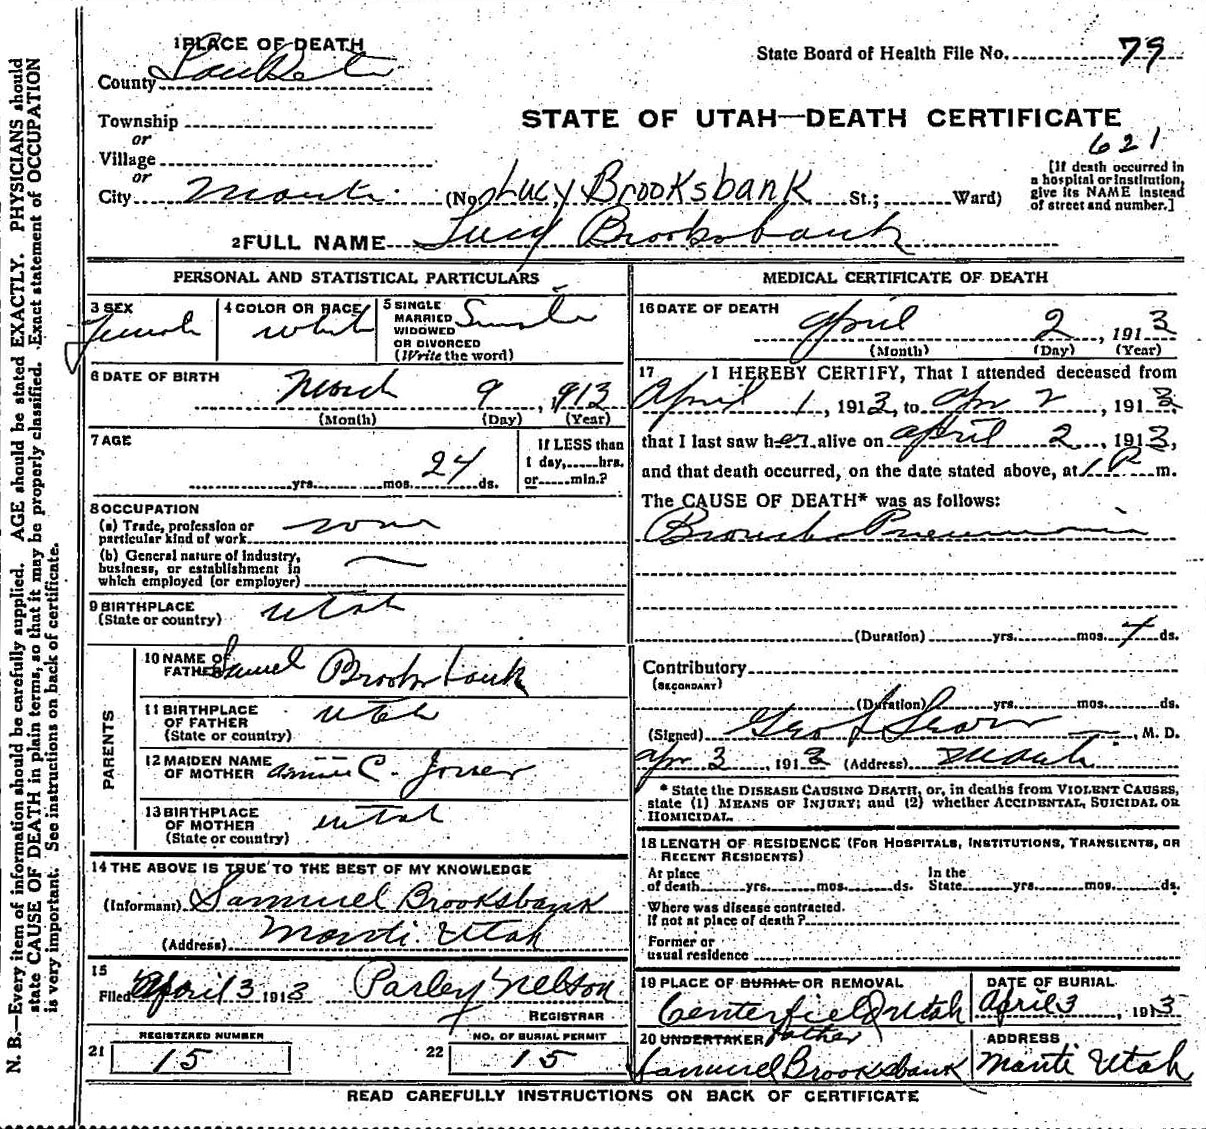 1 PLACE OF DEATH
County SanPete
State Board of Health File No. 79
Township
or
Village
or
City Manti (No. Lucy Brooksbank St.; Ward)
STATE OF UTAH—DEATH CERTIFICATE
621
[If death occurred in
a hospital or institution,
give its NAME instead
of street and number.]
2 FULL NAME Lucy Brooksbank
PERSONAL AND STATISTICAL PARTICULARS
3 SEX
Female
4 COLOR OR RACE
white
5 SINGLE
MARRIED
WIDOWED
OR DIVORCED
(Write the word)
Single
6 DATE OF BIRTH
March 9, 1913
(Month) (Day) (Year)
7 AGE
yrs. mos. 24 ds.
If LESS than
1 day, hrs.
or min.?
8 OCCUPATION
(a) Trade, profession or
particular kind of work none
(b) General nature of industry,
business, or establishment in
which employed (or employer)
9 BIRTHPLACE
(State or country) Utah
PARENTS
10 NAME OF
FATHER Samuel Brooksbank
11 BIRTHPLACE
OF FATHER
(State or country) Utah
12 MAIDEN NAME
OF MOTHER Annie C.
13 BIRTHPLACE
OF MOTHER
(State or country) Utah
14 THE ABOVE IS TRUE TO THE BEST OF MY KNOWLEDGE
(Informant) Samuel Brooksbank
(Address) Manti Utah
15
Filed April 3 1913 Parley Nelson
REGISTRAR
REGISTERED NUMBER
21 15
NO. OF BURIAL PERMIT
22 15
MEDICAL CERTIFICATE OF DEATH
16 DATE OF DEATH
April 2, 1913
(Month) (Day) (Year)
17 I HEREBY CERTIFY, That I attended deceased from
April 1, 1913, to Apr 2, 1913,
that I last saw her alive on April 2, 1913,
and that death occurred, on the date stated above, at 1 P m.
The CAUSE OF DEATH* was as follows:
Broncho Pneumonia
(Duration) yrs. mos. 4 ds.
Contributory
(SECONDARY)
(Duration) yrs. mos. ds.
(Signed) Geo L Sears, M. D.
Apr 3, 1913 (Address) Manti
* State the DISEASE CAUSING DEATH, or, in deaths from VIOLENT CAUSES,
state (1) MEANS OF INJURY; and (2) whether ACCIDENTAL, SUICIDAL OR
HOMICIDAL.
18 LENGTH OF RESIDENCE (FOR HOSPITALS, INSTITUTIONS, TRANSIENTS, OR
RECENT RESIDENTS)
At place
of death yrs. mos. ds.
In the
State yrs. mos. ds.
Where was disease contracted.
If not at place of death?
Former or
usual residence
19 PLACE OF BURIAL OR REMOVAL
Centerfield Utah
DATE OF BURIAL
April 3, 1913
20 UNDERTAKER Father
Samuel Brooksbank
ADDRESS
Manti Utah
READ CAREFULLY INSTRUCTIONS ON BACK OF CERTIFICATE
N. B.—Every item of information should be carefully supplied. AGE should be stated EXACTLY. PHYSICIANS should
state CAUSE OF DEATH in plain terms, so that it may be properly classified. Exact statement of OCCUPATION
is very important. See instructions on back of certificate.